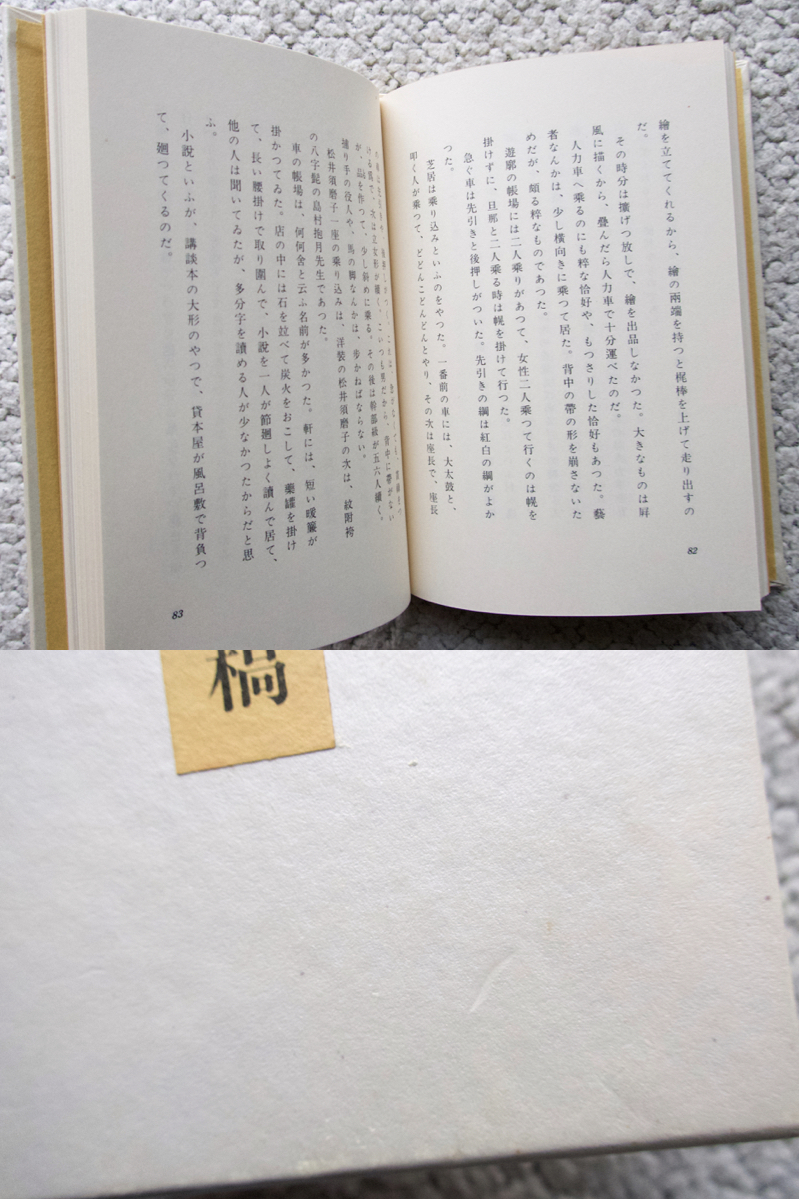 繪を立ててくれるから、繪の兩端を持つと梶棒を上げて走り出すの
だ。
その時分は擴げつ放しで、繪を出品しなかつた。大きなものは屛
風に描くから、疊んだら人力車で十分運べたのだ。
人力車へ乘るのにも粹な恰好や、もつさりした恰好もあつた。藝
者なんかは、少し橫向きに乘つて居た。背中の帶の形を崩さないた
めだが、頗る粹なものであつた。
遊廓の帳場には二人乘りがあつて、女性二人乘つて行くのは幌を
掛けずに、旦那と二人乘る時は幌を掛けて行つた。
急ぐ車は先引きと後押しがついた。先引きの綱は紅白の綱がよか
つた。
芝居は乘り込みといふのをやつた。一番前の車には、大太鼓と、
叩く人が乘つて、どどんこどんどんとやり、その次は座長で、座長
ける位で、次は立女形が續く、こいつも男だから、背中に帶がない
が、品を作つて、少し斜めに乘る。その後は幹部級が五六人續く。
捕り手の役人や、馬の脚なんかは、步かねばならない。
松井須磨子一座の乘り込みは、洋裝の松井須磨子の次は、紋附袴
の八字髭の島村抱月先生であつた。
車の帳場は、何何舍と云ふ名前が多かつた。軒には、短い暖簾が
掛かつてゐた。店の中には石を竝べて炭火をおこして、藥罐を掛け
て、長い腰掛けで取り圍んで、小說を一人が節廻しよく讀んで居て、
他の人は聞いてゐたが、多分字を讀める人が少なかつたからだと思
ふ。
小說といふが、講談本の大形のやつで、貸本屋が風呂敷で背負つ
て、廻つてくるのだ。
82
83
稿